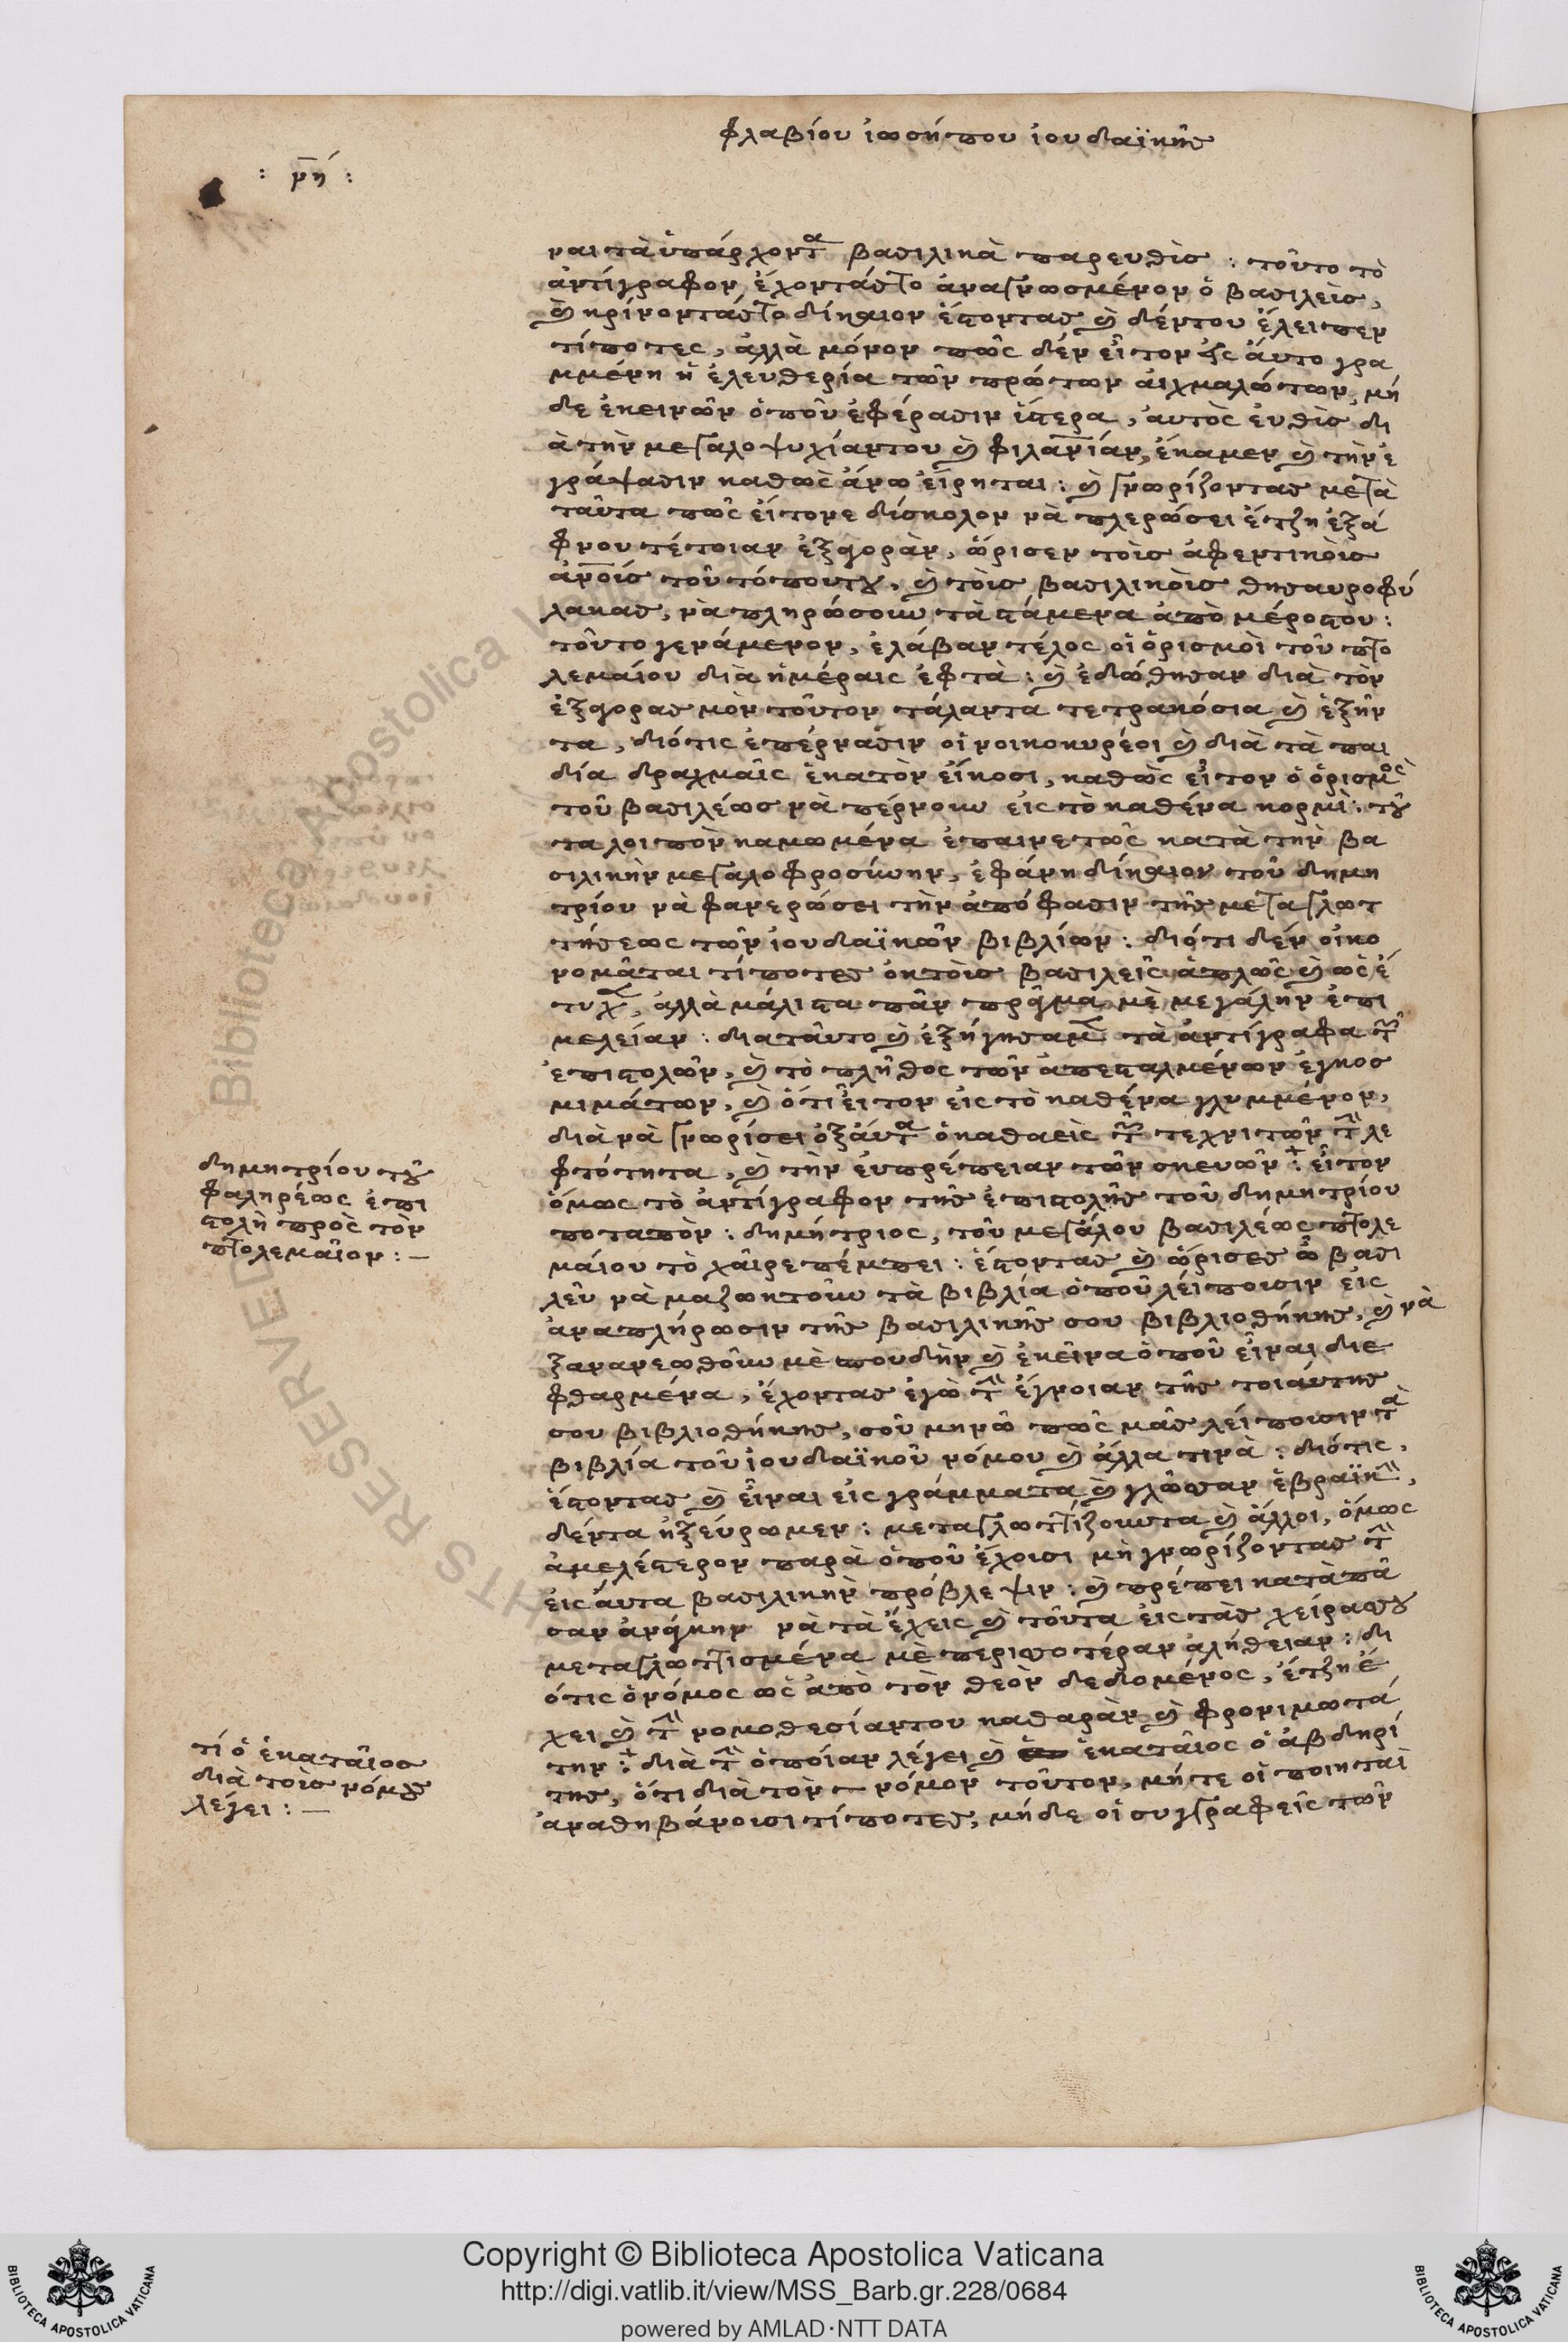 φλαβίου ἰωσήπου ἰουδαϊκῆς
: ρη :
ναι τὰ ὑπάρχοντα βασιλικὰ παρευθὶς : τοῦτο τὸ
ἀντίγραφον ἔχοντάς το ἀναγνωσμένον ὁ βασιλεὶς,
καὶ κρίνοντάς το δίκαιον ἔστοντας καὶ δέντου ἔλειπεν
τίποτες, ἀλλὰ μόνον πῶς δὲν εἶτον εἰς ἄυτο γρα
μμένη ἡ ἐλευθερία τῶν πρώτων ἀιχμαλώτων, μή
δε ἐκεινῶν ὁποῦ ἐφέρασιν ὕστερα, ἀυτὸς ἐυθὶς δι
ὰ τὴν μεγαλοψυχίαντου καὶ φιλανίαν, ἔκαμεν καὶ τὴν ἐ
γράψασιν καθὼς ἄνω εἴρηται : καὶ γνωρίζοντας μετὰ
ταῦτα πῶς εἴτονε δίσκολον νὰ πλερώσει ἔτζη ἐξά
φνου τέτοιαν ἐξαγορὰν, ὥρισεν τοὶς ἀφεντικοὶς
ἀνοίς τοῦ τόπουτου, καὶ τοὶς βασιλικοὶς θησαυροφύ
λακας, νὰ πληρώσουν τὰ στάμενα ἀπὸ μέροςτου :
τοῦτο γενάμενον, ἐλάβαν τέλος οἱ ὁρισμοὶ τοῦ πτο
λεμαίου διὰ ἡμέραις ἐφτὰ : καὶ ἐδώθησαν διὰ τὸν
ἐξαγορασμὸν τοῦτον τάλαντα τετρακόσια καὶ ἐξῆν
τα, διότις ἐπέρνασιν οἱ νοικοκυρέοι καὶ διὰ τὰ παι
δία δραχμαῖς ἑκατὸν εἴκοσι, καθὼς εἶτον ὁ ὁρισμὸς
τοῦ βασιλέως νὰ πέρνουν εἰς τὸ καθένα κορμὶ : τοῦ
τα λοιπὸν καμωμένα ἐπαινετῶς κατὰ τὴν βα
σιλικὴν μεγαλοφροσύνην, ἐφάνη δίκαιον τοῦ δημη
τρίου νὰ φανερώσει τὴν ἀπόφασιν τῆς μεταγλωτ
τήσεως τῶν ἰουδαϊκῶν βιβλίων : διότι δὲν οἰκο
νομᾶται τίποτες ἐκ τοὶς βασιλεῖς ἁπλῶς καὶ ὡς ἔ
τυχ, ἀλλὰ μάλιστα πᾶν πρᾶγμα μὲ μεγάλην ἐπι
μελείαν : διαταῦτο καὶ ἐξήγησαμ τὰ ἀντίγραφα τῶν
ἐπιστολῶν, καὶ τὸ πλῆθος τῶν ἀπεσταλμένων ἐγκοσ
μιμάτων, καὶ ὅτι εἶτον εἰς τὸ καθένα γλυμμένον,
διὰ νὰ γνωρίσει ἐξάυτα ὁ καθαεὶς τῶν τεχνιτῶν τὴν λε
φτότητα, καὶ τὴν ἐυπρέπειαν τῶν σκευῶν : εἶτον
ὅμως τὸ ἀντίγραφον τῆς ἐπιστολῆς τοῦ δημητρίου
ποταπὸν : δημήτριος, τοῦ μεγάλου βασιλέως πτολε
μάιου τὸ χαῖρε πέμπει : ἔστοντας καὶ ὥρισες ὦ βασι
λεῦ νὰ μαζωκτοῦν τὰ βιβλία ὁποῦ λέιπουσιν εἰς
ἀναπλήρωσιν τῆς βασιλικῆς σου βιβλιοθήκης, καὶ νὰ
ξανανεωθοῦν μὲ σπουδὴν καὶ ἐκεῖνα ὁποῦ εἶναι διε
φθαρμένα, ἔχοντας ἐγὼ τὴν ἔγνοιαν τῆς τοιαύτης
σου βιβλιοθήκης, σοῦ μηνῶ πῶς μᾶς λείπουσιν τὰ
βιβλία τοῦ ἰουδαϊκοῦ νόμου καὶ ἄλλα τινὰ : διότις,
ἔστοντας καὶ εἶναι εἰς γράμματα καὶ γλῶσσαν ἑβραϊκὴν,
δέντα ἠξεύρωμεν : μεταγλωττίζουντα καὶ ἄλλοι, ὅμως
ἀμελέστερον παρὰ ὁποῦ ἔχουσι μὴ γνωρίζοντας τὴν
εἰς ἄυτα βασιλικὴν πρόβλεψιν : καὶ πρέπει κατὰ πᾶ
σαν ἀνάγκην νὰ τὰ ἔχεις καὶ τοῦτα εἰς τὰς χείρας σου
μεταγλωττισμένα μὲ περισσοτέραν ἀλήθειαν : δι
ότις ὁ νόμος ὡς ἀπὸ τὸν θεὸν δεδομένος, ἔτζη ἔ
χει καὶ τὴν νομοθεσίαντου καθαρὰν καὶ φρονιμωτά
την : διὰ τὴν ὁποίαν λέγει καὶ ἑκατᾶιος ὁ ἀβδηρί
της, ὅτι διὰ τὸν νόμον τοῦτον, μήτε οἱ ποιηταὶ
ἀναθηβάνουσι τίποτες, μήδε οἱ συγγραφεῖς τῶν
δημητρίου τοῦ
φαληρέως ἐπι
στολὴ πρὸς τὸν
πτολεμαῖον : —
τί ὁ ἑκατᾶιος
διὰ τοὶς νόμους
λέγει : —
Copyright © Biblioteca Apostolica Vaticana
http://digi.vatlib.it/view/MSS_Barb.gr.228/0684
powered by AMLAD·NTT DATA
BIBLIOTECA APOSTOLICA VATICANA
BIBLIOTECA APOSTOLICA VATICANA